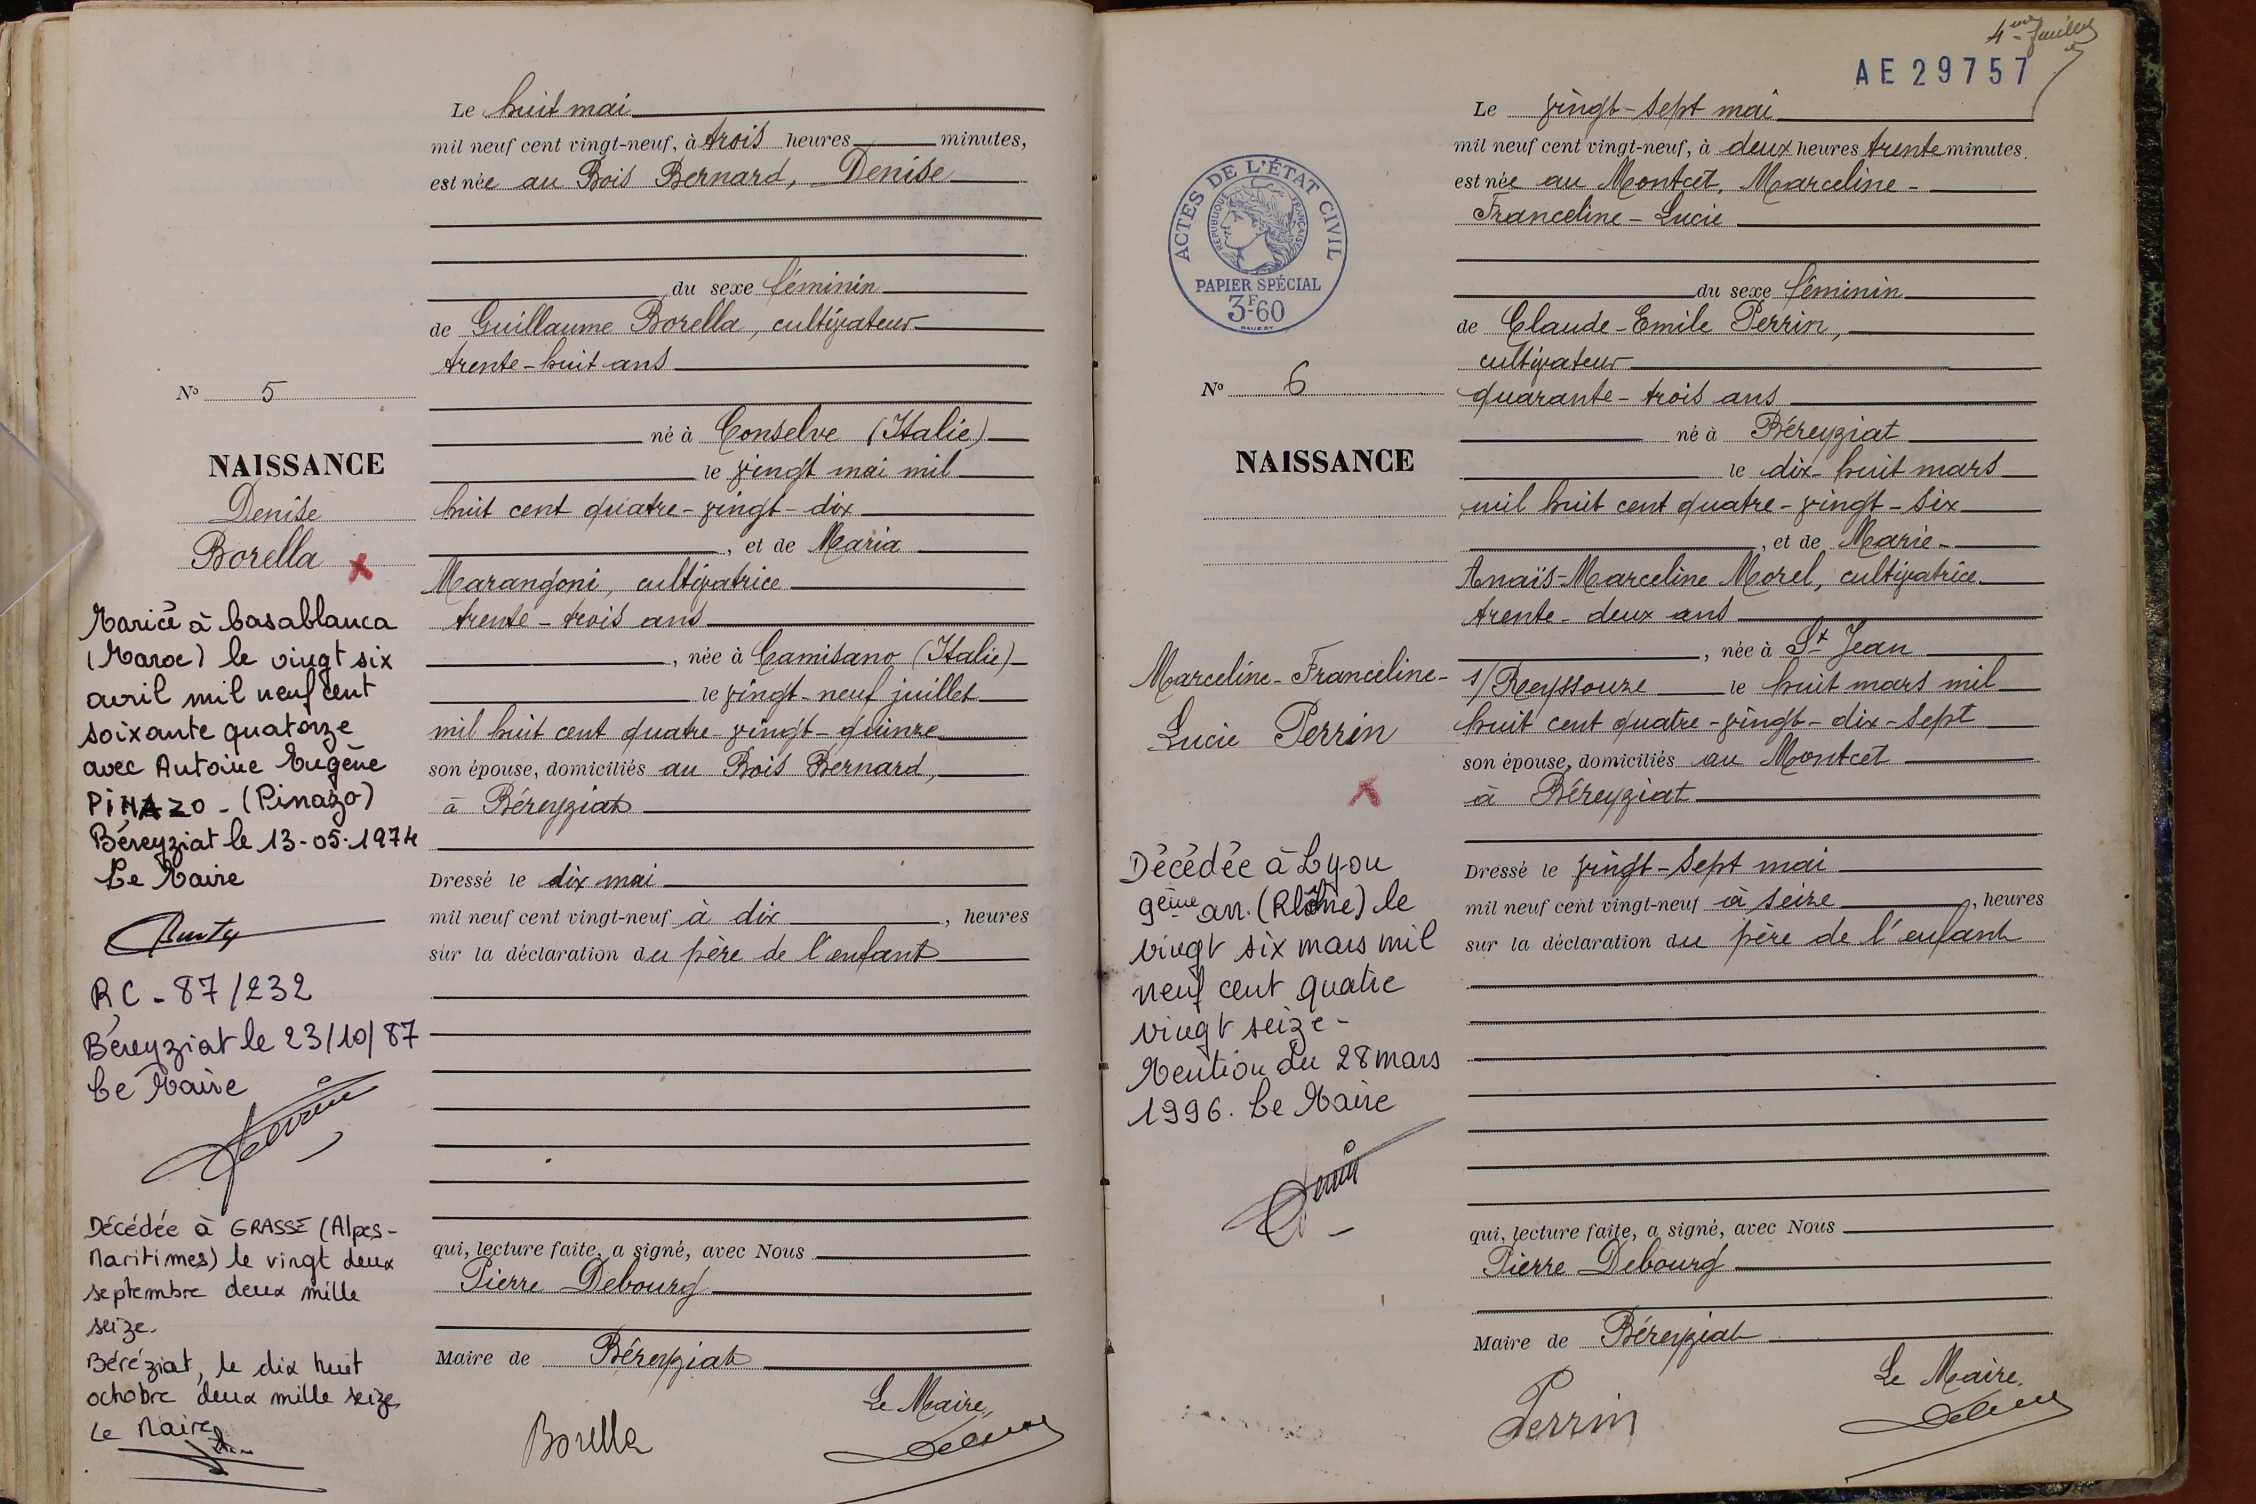 Le huit mai
mil neuf cent vingt-neuf, à trois heures minutes,
est née au Bois Bernard, Denise
du sexe féminin
de Guillaume Borella, cultivateur
trente-huit ans
né à Conselve (Italie)
le vingt mai mil
huit cent quatre-vingt-dix
, et de Maria
Marangoni, cultivatrice
trente-trois ans
, née à Camisano (Italie)
le vingt-neuf juillet
mil huit cent quatre-vingt-quinze
son épouse, domiciliés au Bois Bernard,
à Béreyziat
Dressé le dix mai
mil neuf cent vingt-neuf à dix , heures
sur la déclaration du père de l'enfant
qui, lecture faite, a signé, avec Nous
Pierre Debourg
Maire de Béreyziat
Le Maire,
Borella
No 5
NAISSANCE
Denise
Borella
Mariée à Casablanca
(Maroc) le vingt six
avril mil neuf cent
soixante quatorze
avec Antoine Eugène
PINAZO - (Pinazo)
Béreyziat le 13-05-1974
Le Maire
RC - 87/232
Béreyziat le 23/10/87
Le Maire
Décédée à GRASSE (Alpes-
Maritimes) le vingt deux
septembre deux mille
seize.
Béréziat, le dix huit
octobre deux mille seize,
Le Maire,
4me feuillet
AE 29757
Le vingt-sept mai
mil neuf cent vingt-neuf, à deux heures trente minutes,
est née au Montcet, Marceline-
Franceline-Lucie
du sexe féminin
de Claude-Emile Perrin,
cultivateur
quarante-trois ans
né à Béreyziat
le dix-huit mars
mil huit cent quatre-vingt-six
, et de Marie-
Anaïs-Marceline Morel, cultivatrice
trente-deux ans
, née à St Jean
s/Reyssouze le huit mars mil
huit cent quatre-vingt-dix-sept
son épouse, domiciliés au Montcet
à Béreyziat
Dressé le vingt-sept mai
mil neuf cent vingt-neuf à seize , heures
sur la déclaration du père de l'enfant
qui, lecture faite, a signé, avec Nous
Pierre Debourg
Maire de Béreyziat
Le Maire,
Perrin
ACTES DE L'ÉTAT CIVIL
RÉPUBLIQUE FRANÇAISE
PAPIER SPÉCIAL
3F.60
No 6
NAISSANCE
Marceline-Franceline-
Lucie Perrin
Décédée à Lyon
9ème arr. (Rhône) le
vingt six mars mil
neuf cent quatre
vingt seize -
Mention du 28 mars
1996. Le Maire